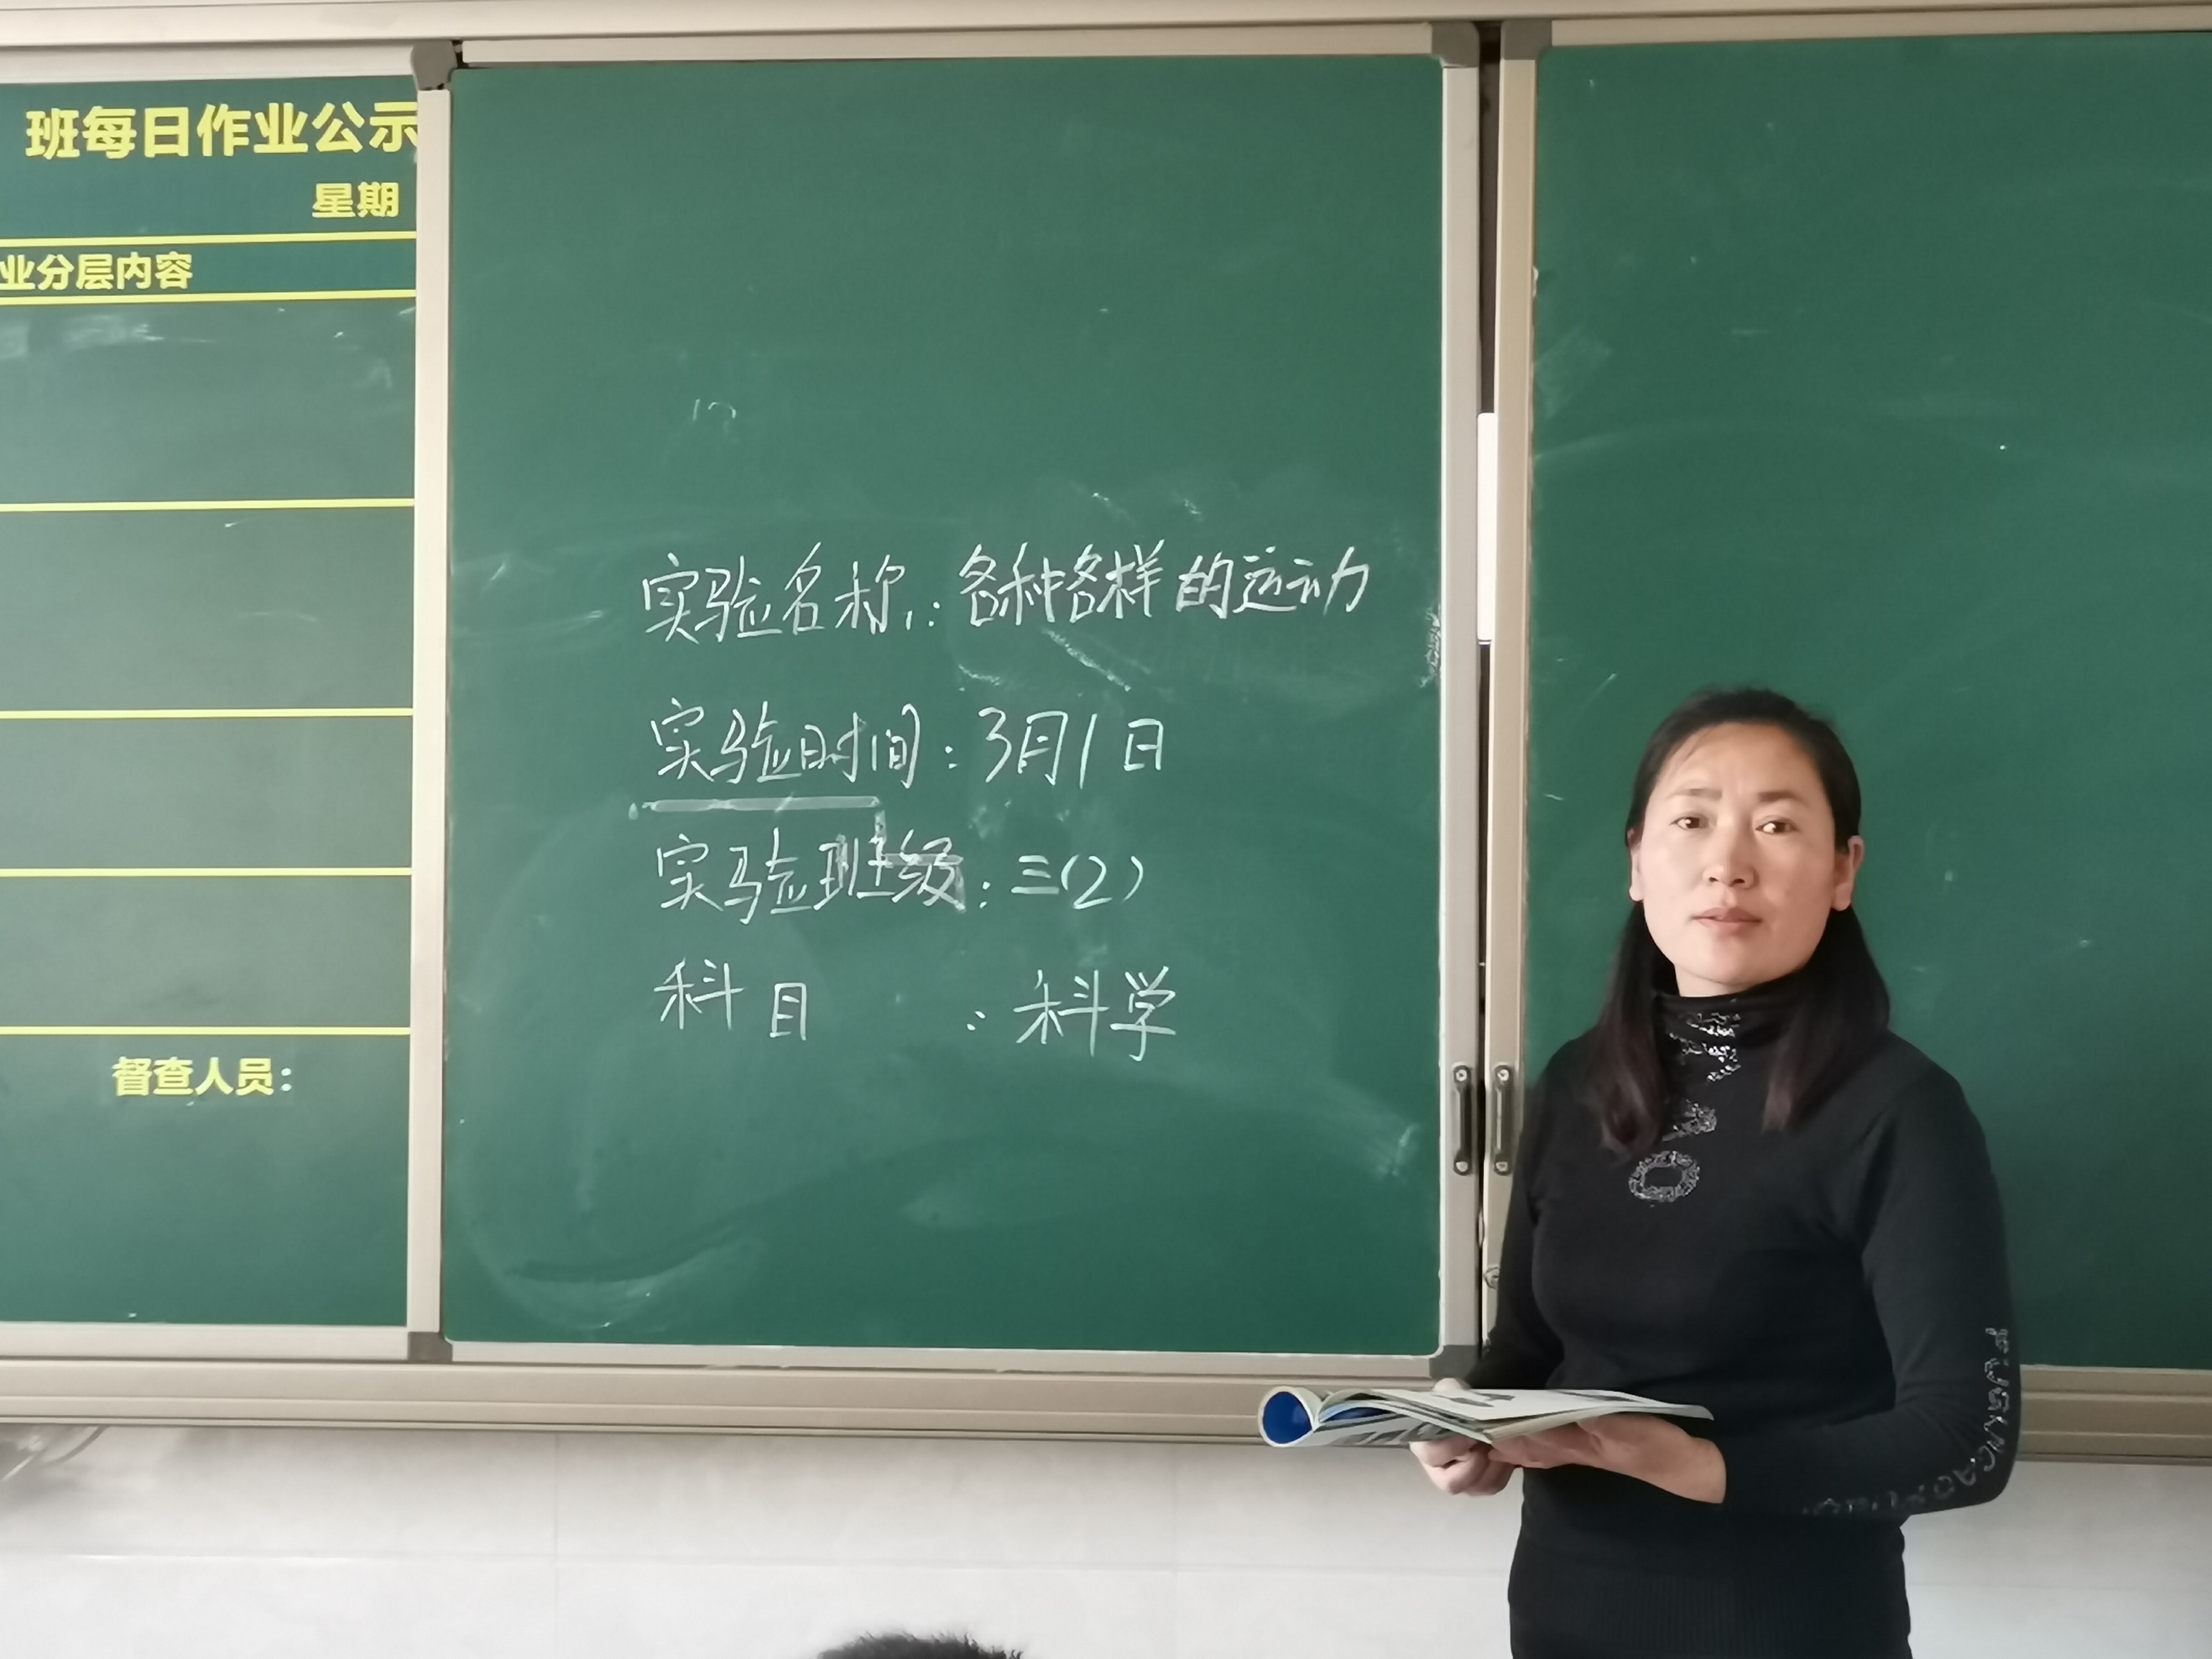 班每日作业公示
星期
业分层内容
督查人员：
实验名称：各种各样的运动
实验时间：3月1日
实验班级：三（2）
科目：科学